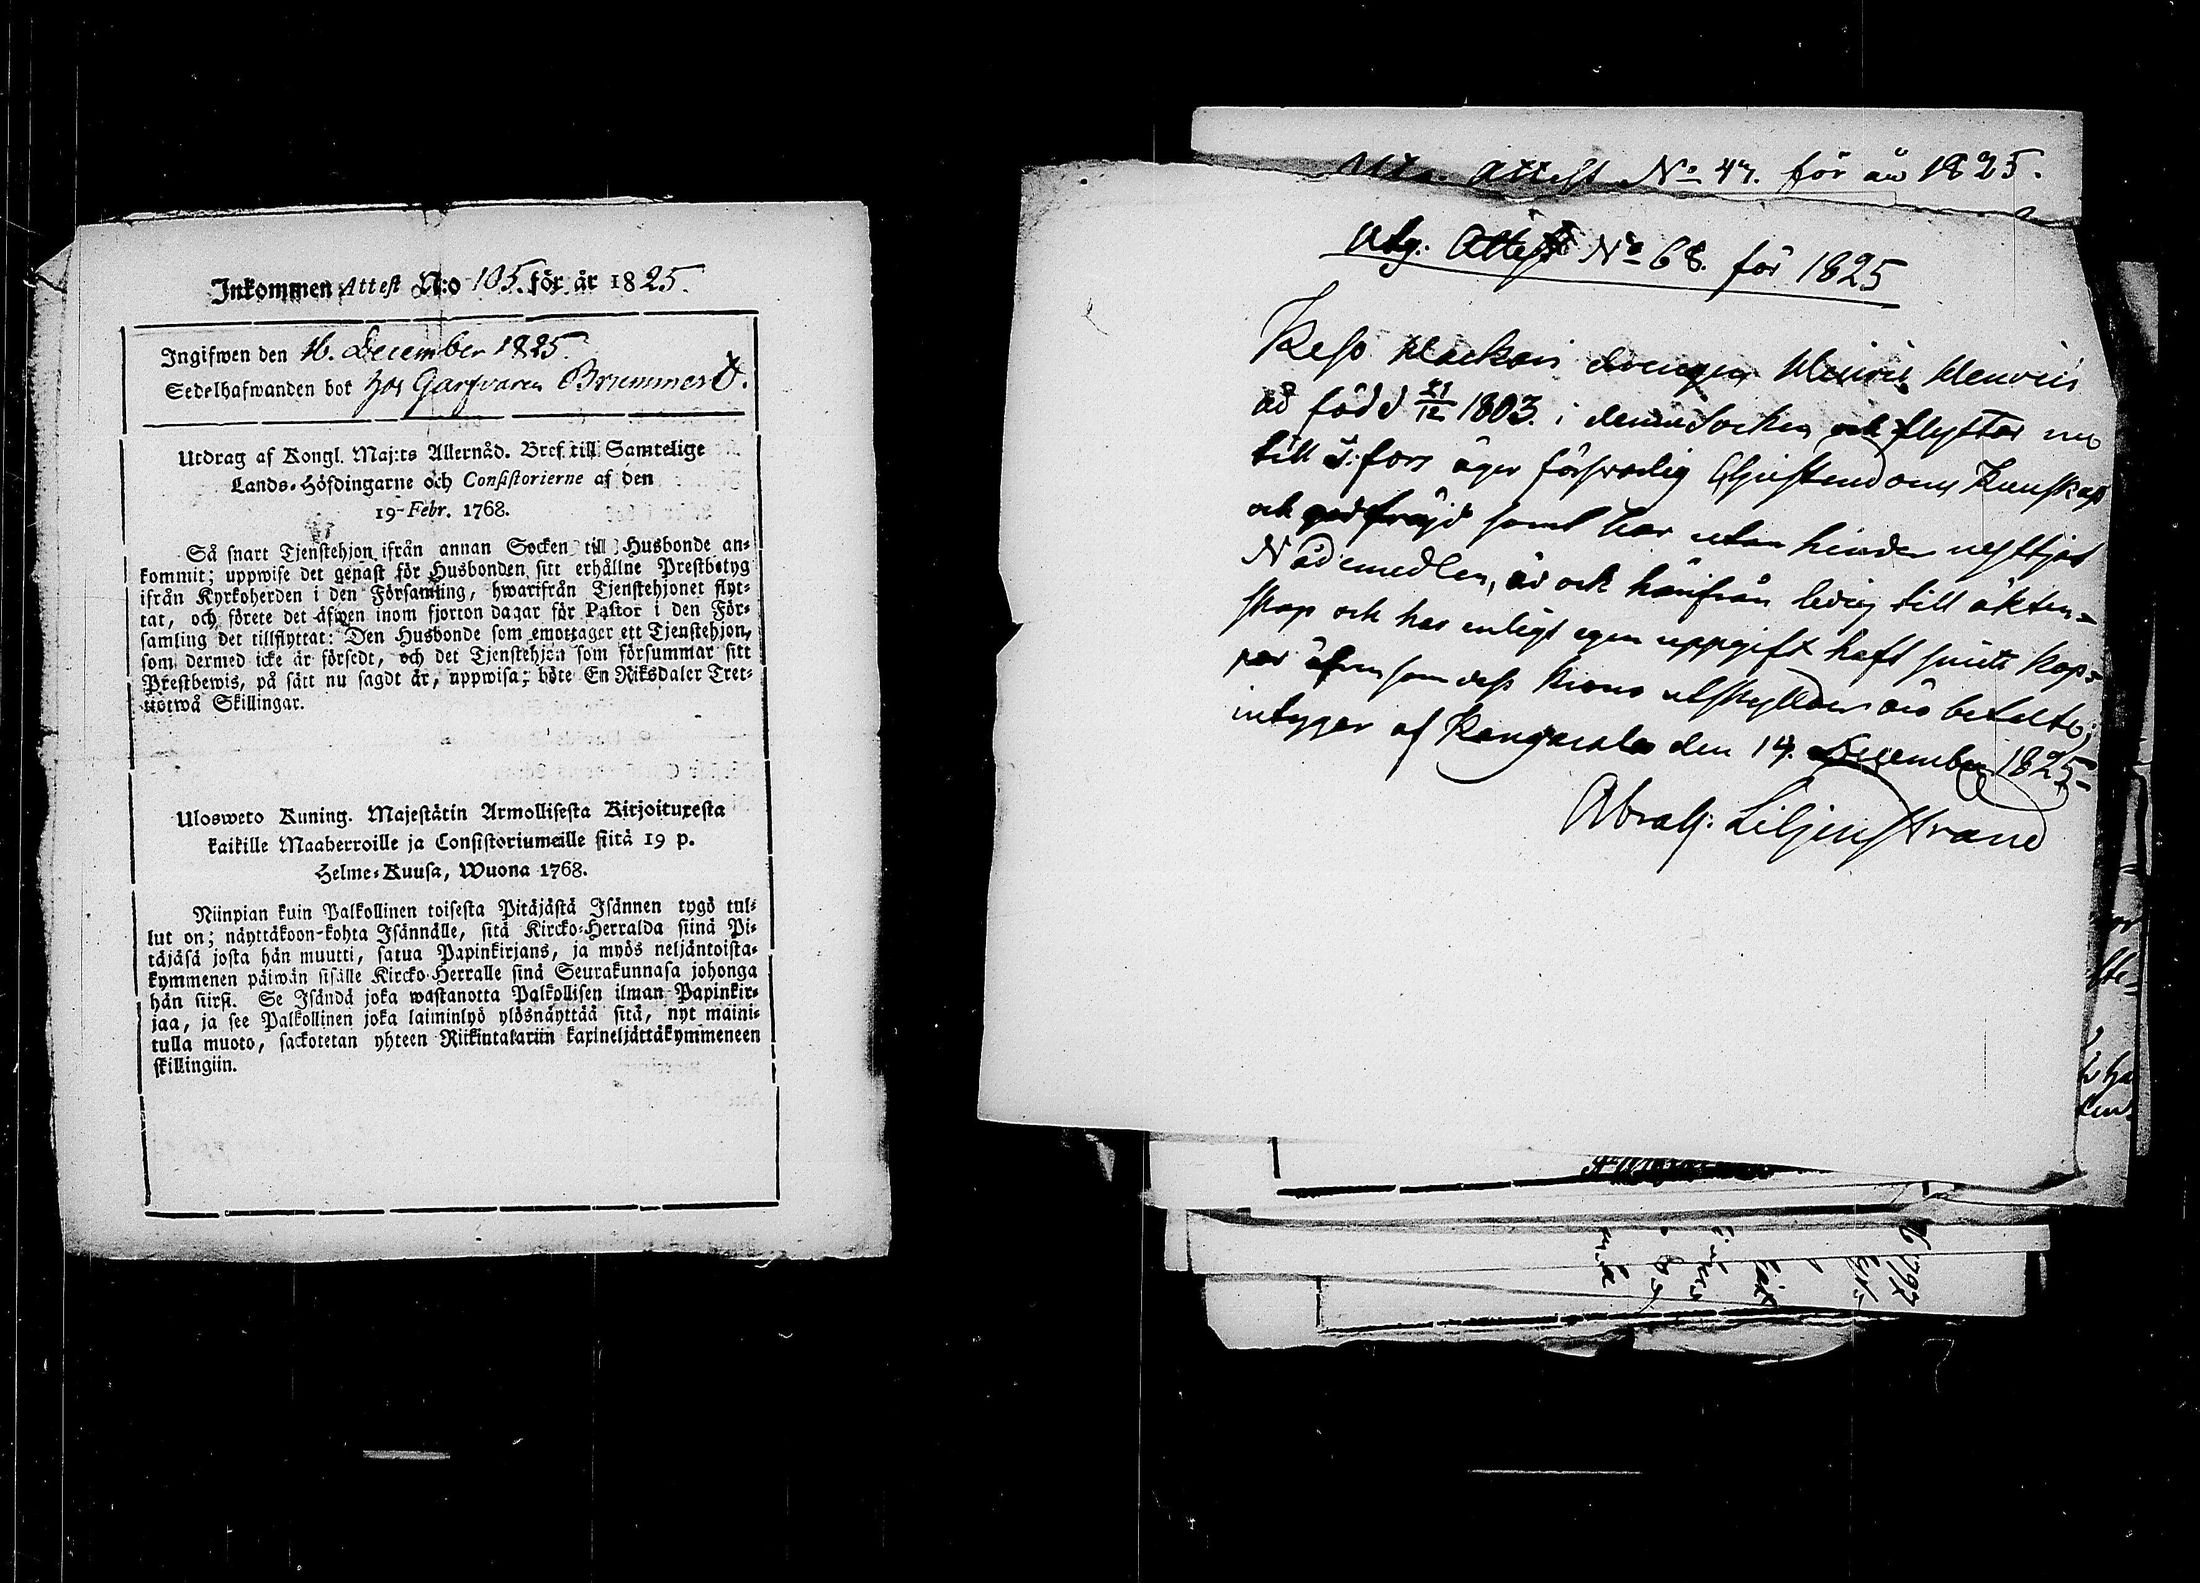 Inkommen Attest N:o 105. för år 1825.
Ingifwen den 16. December 1825.
Sedelhafwanden bor hos Garfvaren Brummer
Utdrag af Kongl. Maj:ts Allernåd. Bref till Samtelige
Lands-Höfdingarne och Consistorierne af den
19 Febr. 1768.
Så snart Tjenstehjon ifrån annan Socken till Husbonde an-
kommit; uppwise det genast för Husbonden sitt erhållne Prestbetyg
ifrån Kyrkoherden i den Församling, hwarifrån Tjenstehjonet flyt-
tat, och förete det äfwen inom fjorton dagar för Pastor i den För-
samling det tillflyttat: Den Husbonde som emottager ett Tjenstehjon,
som dermed icke är försedt, och det Tjenstehjon som försummar sitt
Prestbewis, på sätt nu sagdt är, uppwisa; böte En Riksdaler Tret-
tiotwå Skillingar.
Ulosweto Kuning. Majestätin Armollisesta Kirjoituxesta
kaikille Maaherroille ja Consistoriumeille siitä 19 p.
Helme-Kuusa, Wuona 1768.
Niinpian kuin Palkollinen toisesta Pitäjästä Isännen tygö tul-
lut on; näyttäkoon-kohta Isännälle, sitä Kircko-Herralda siinä Pi-
täjäsä josta hän muutti, satua Papinkirjans, ja myös neljäntoista-
kymmenen päiwän sisälle Kircko-Herralle sinä Seurakunnasa johonga
hän siirsi. Se Isändä joka wastanotta Palkollisen ilman Papinkir-
jaa, ja see Palkollinen joka laiminlyö ylösnäyttää sitä, nyt maini-
tulla muoto, sackotetan yhteen Riikintalariin kaxineljättäkymmeneen
skillingiin.
Attest No 47. för år 1825.
Utg. Attest No 68. för 1825
Keso Mackois drengen Henric Henrics
ad född 21/12 1803. i denna Socken och flyttar nu
till T:fors äger försvarlig Christendoms Kunskap
och god fräjd samt har utan hinder nyttjat
Nådemedlen, är ock härifrån ledig till äkten-
skap och har enligt egen uppgift haft skydds kop-
por äfven som dess Krono utskylder äro betalte;
intygar af Kangasala den 14. December 1825
Abrah: Liljenstrand